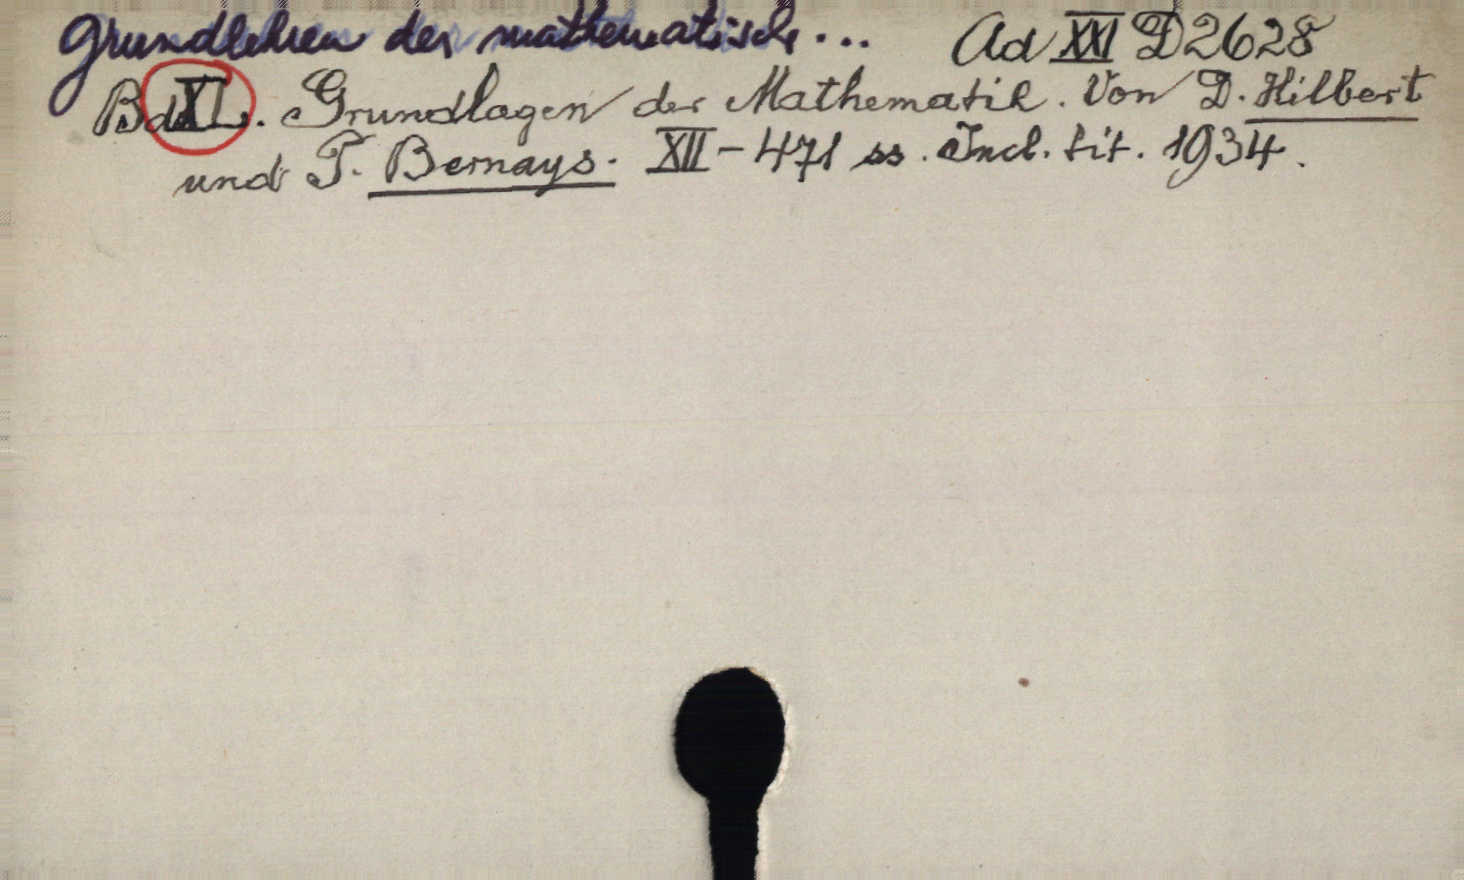 Grundlehren der mathematisch... Ad XXI D2628
Bd XL. Grundlagen der Mathematik. Von D. Hilbert
und P. Bernays. XII-471 ss. Incl. tit. 1934.